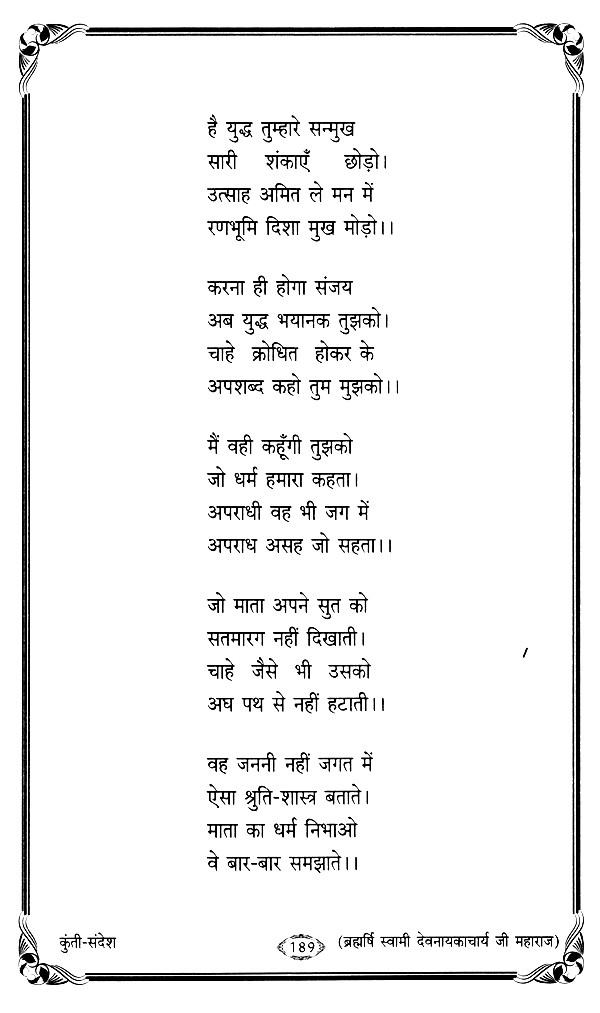 है युद्ध तुम्हारे सन्मुख
सारी शंकाएँ छोड़ो।
उत्साह अमित ले मन में
रणभूमि दिशा मुख मोड़ो।।
करना ही होगा संजय
अब युद्ध भयानक तुझको।
चाहे क्रोधित होकर के
अपशब्द कहो तुम मुझको।।
मैं वही कहूँगी तुझको
जो धर्म हमारा कहता।
अपराधी वह भी जग में
अपराध असह जो सहता।।
जो माता अपने सुत को
सतमारग नहीं दिखाती।
चाहे जैसे भी उसको
अघ पथ से नहीं हटाती।।
वह जननी नहीं जगत में
ऐसा श्रुति-शास्त्र बताते।
माता का धर्म निभाओ
वे बार-बार समझाते।।
कुंती-संदेश 189 (ब्रह्मर्षि स्वामी देवनायकाचार्य जी महाराज)